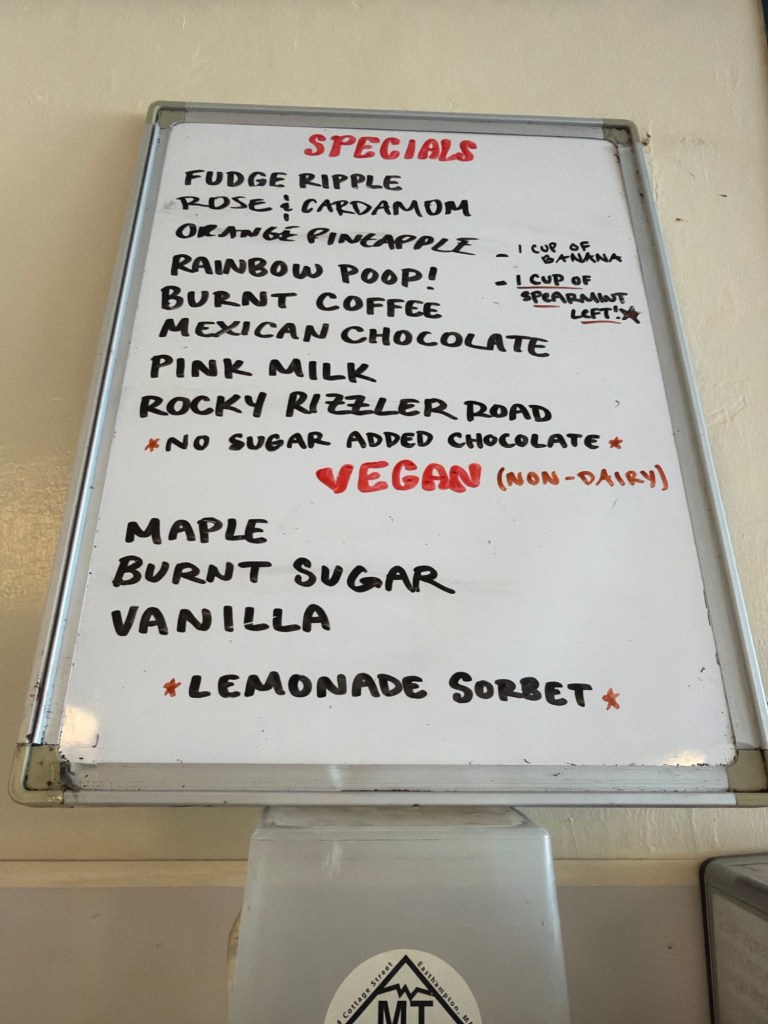 SPECIALS
FUDGE RIPPLE
ROSE & CARDAMOM
ORANGE PINEAPPLE
- 1 CUP OF
BANANA
RAINBOW POOP!
- 1 CUP OF
SPEARMINT
LEFT!
BURNT COFFEE
MEXICAN CHOCOLATE
PINK MILK
ROCKY RIZZLER ROAD
*NO SUGAR ADDED CHOCOLATE*
VEGAN (NON-DAIRY)
MAPLE
BURNT SUGAR
VANILLA
*LEMONADE SORBET*
Cottage Street
Easthampton, MA
MT